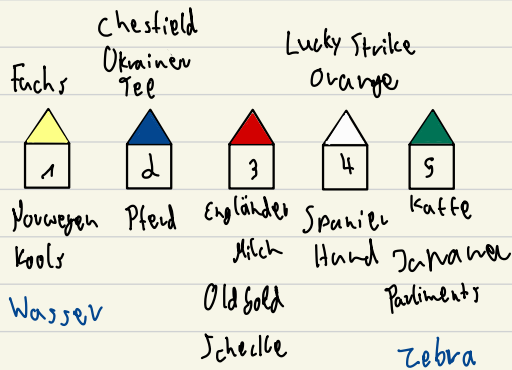 Chesfield
Ukrainer
Tee
Lucky Strike
Orange
Fuchs
1
2
3
4
5
Norwegen
Kools
Wasser
Pferd
Engländer
Milch
Old Gold
Schecke
Spanier
Hund
Kaffe
Japaner
Parliments
Zebra